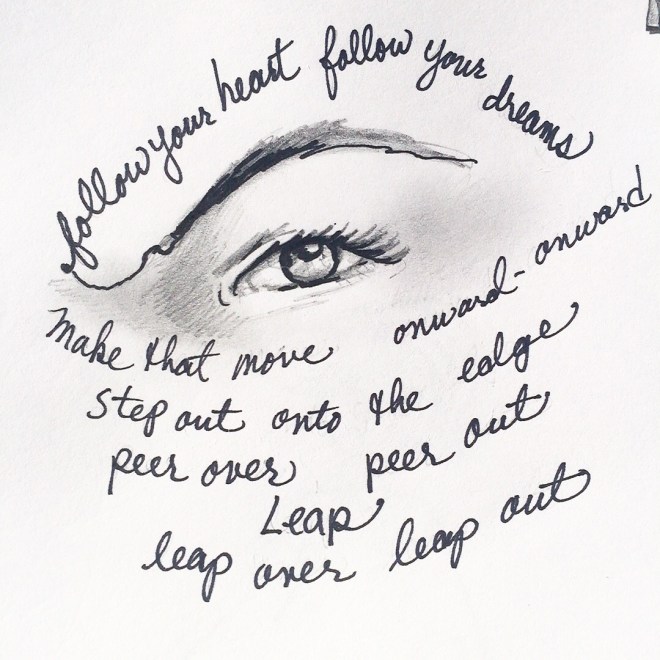 follow your heart follow your dreams
Make that move onward-onward
step out onto the edge
peer over peer out
Leap
leap over leap out